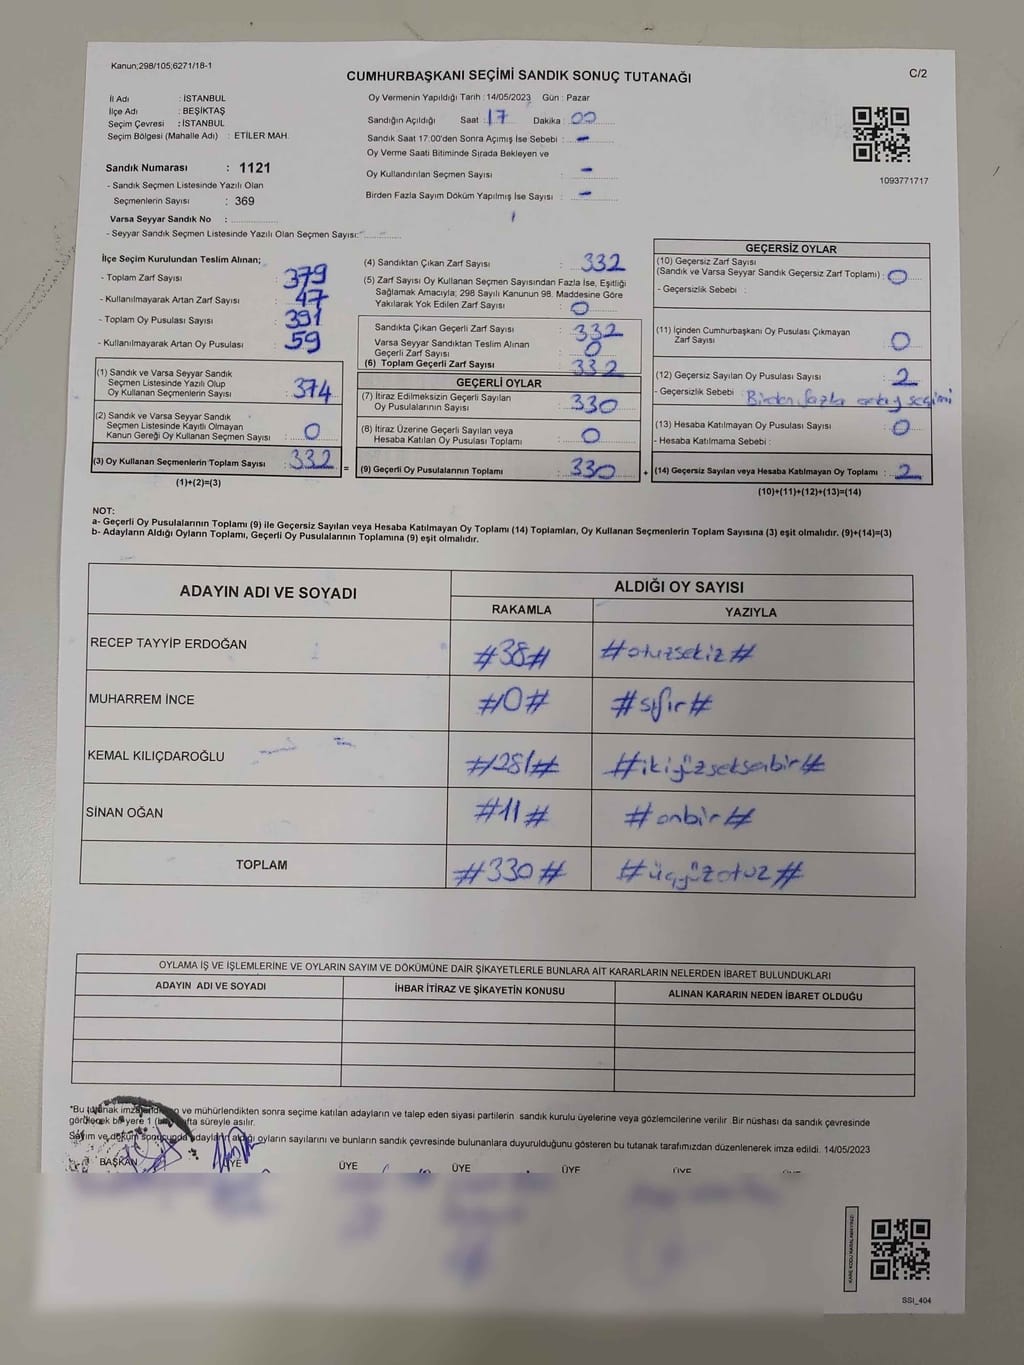 Kanun;298/105;6271/18-1
CUMHURBAŞKANI SEÇİMİ SANDIK SONUÇ TUTANAĞI
C/2
İl Adı : İSTANBUL
İlçe Adı : BEŞİKTAŞ
Seçim Çevresi : İSTANBUL
Seçim Bölgesi (Mahalle Adı) : ETİLER MAH.
Sandık Numarası : 1121
- Sandık Seçmen Listesinde Yazılı Olan
Seçmenlerin Sayısı : 369
Varsa Seyyar Sandık No :
- Seyyar Sandık Seçmen Listesinde Yazılı Olan Seçmen Sayısı:
Oy Vermenin Yapıldığı Tarih : 14/05/2023 Gün : Pazar
Sandığın Açıldığı Saat : 17 Dakika : 00
Sandık Saat 17:00'den Sonra Açımış İse Sebebi : -
Oy Verme Saati Bitiminde Sırada Bekleyen ve
Oy Kullandırılan Seçmen Sayısı : -
Birden Fazla Sayım Döküm Yapılmış İse Sayısı : -
1093771717
İlçe Seçim Kurulundan Teslim Alınan;
- Toplam Zarf Sayısı : 379
- Kullanılmayarak Artan Zarf Sayısı : 47
- Toplam Oy Pusulası Sayısı : 391
- Kullanılmayarak Artan Oy Pusulası : 59
(1) Sandık ve Varsa Seyyar Sandık
Seçmen Listesinde Yazılı Olup
Oy Kullanan Seçmenlerin Sayısı : 374
(2) Sandık ve Varsa Seyyar Sandık
Seçmen Listesinde Kayıtlı Olmayan
Kanun Gereği Oy Kullanan Seçmen Sayısı : 0
(3) Oy Kullanan Seçmenlerin Toplam Sayısı : 332
(1)+(2)=(3)
(4) Sandıktan Çıkan Zarf Sayısı : 332
(5) Zarf Sayısı Oy Kullanan Seçmen Sayısından Fazla İse, Eşitliği
Sağlamak Amacıyla; 298 Sayılı Kanunun 98. Maddesine Göre
Yakılarak Yok Edilen Zarf Sayısı : 0
Sandıkta Çıkan Geçerli Zarf Sayısı : 332
Varsa Seyyar Sandıktan Teslim Alınan
Geçerli Zarf Sayısı : 0
(6) Toplam Geçerli Zarf Sayısı : 332
GEÇERLİ OYLAR
(7) İtiraz Edilmeksizin Geçerli Sayılan
Oy Pusulalarının Sayısı : 330
(8) İtiraz Üzerine Geçerli Sayılan veya
Hesaba Katılan Oy Pusulası Toplamı : 0
= (9) Geçerli Oy Pusulalarının Toplamı : 330 +
GEÇERSİZ OYLAR
(10) Geçersiz Zarf Sayısı
(Sandık ve Varsa Seyyar Sandık Geçersiz Zarf Toplamı) : 0
- Geçersizlik Sebebi :
(11) İçinden Cumhurbaşkanı Oy Pusulası Çıkmayan
Zarf Sayısı : 0
(12) Geçersiz Sayılan Oy Pusulası Sayısı : 2
- Geçersizlik Sebebi : Birden fazla aday seçimi
(13) Hesaba Katılmayan Oy Pusulası Sayısı : 0
- Hesaba Katılmama Sebebi :
(14) Geçersiz Sayılan veya Hesaba Katılmayan Oy Toplamı : 2
(10)+(11)+(12)+(13)=(14)
NOT:
a- Geçerli Oy Pusulalarının Toplamı (9) ile Geçersiz Sayılan veya Hesaba Katılmayan Oy Toplamı (14) Toplamları, Oy Kullanan Seçmenlerin Toplam Sayısına (3) eşit olmalıdır. (9)+(14)=(3)
b- Adayların Aldığı Oyların Toplamı, Geçerli Oy Pusulalarının Toplamına (9) eşit olmalıdır.
ADAYIN ADI VE SOYADI
ALDIĞI OY SAYISI
RAKAMLA YAZIYLA
RECEP TAYYİP ERDOĞAN #38# #otuzsekiz#
MUHARREM İNCE #0# #sıfır#
KEMAL KILIÇDAROĞLU #281# #ikiyüzseksenbir#
SİNAN OĞAN #11# #onbir#
TOPLAM #330# #üçyüzotuz#
OYLAMA İŞ VE İŞLEMLERİNE VE OYLARIN SAYIM VE DÖKÜMÜNE DAİR ŞİKAYETLERLE BUNLARA AİT KARARLARIN NELERDEN İBARET BULUNDUKLARI
ADAYIN ADI VE SOYADI İHBAR İTİRAZ VE ŞİKAYETİN KONUSU ALINAN KARARIN NEDEN İBARET OLDUĞU
*Bu tutanak ve mühürlendikten sonra seçime katılan adayların ve talep eden siyasi partilerin sandık kurulu üyelerine veya gözlemcilerine verilir. Bir nüshası da sandık çevresinde
görülecek bir yere 1 süreyle asılır.
Sayım ve döküm sonucunda adayların aldığı oyların sayılarını ve bunların sandık çevresinde bulunanlara duyurulduğunu gösteren bu tutanak tarafımızdan düzenlenerek imza edildi. 14/05/2023
BAŞKAN ÜYE ÜYE ÜYE ÜYE ÜYE
KARE KODU KARALAMAYINIZ!
SSI_404